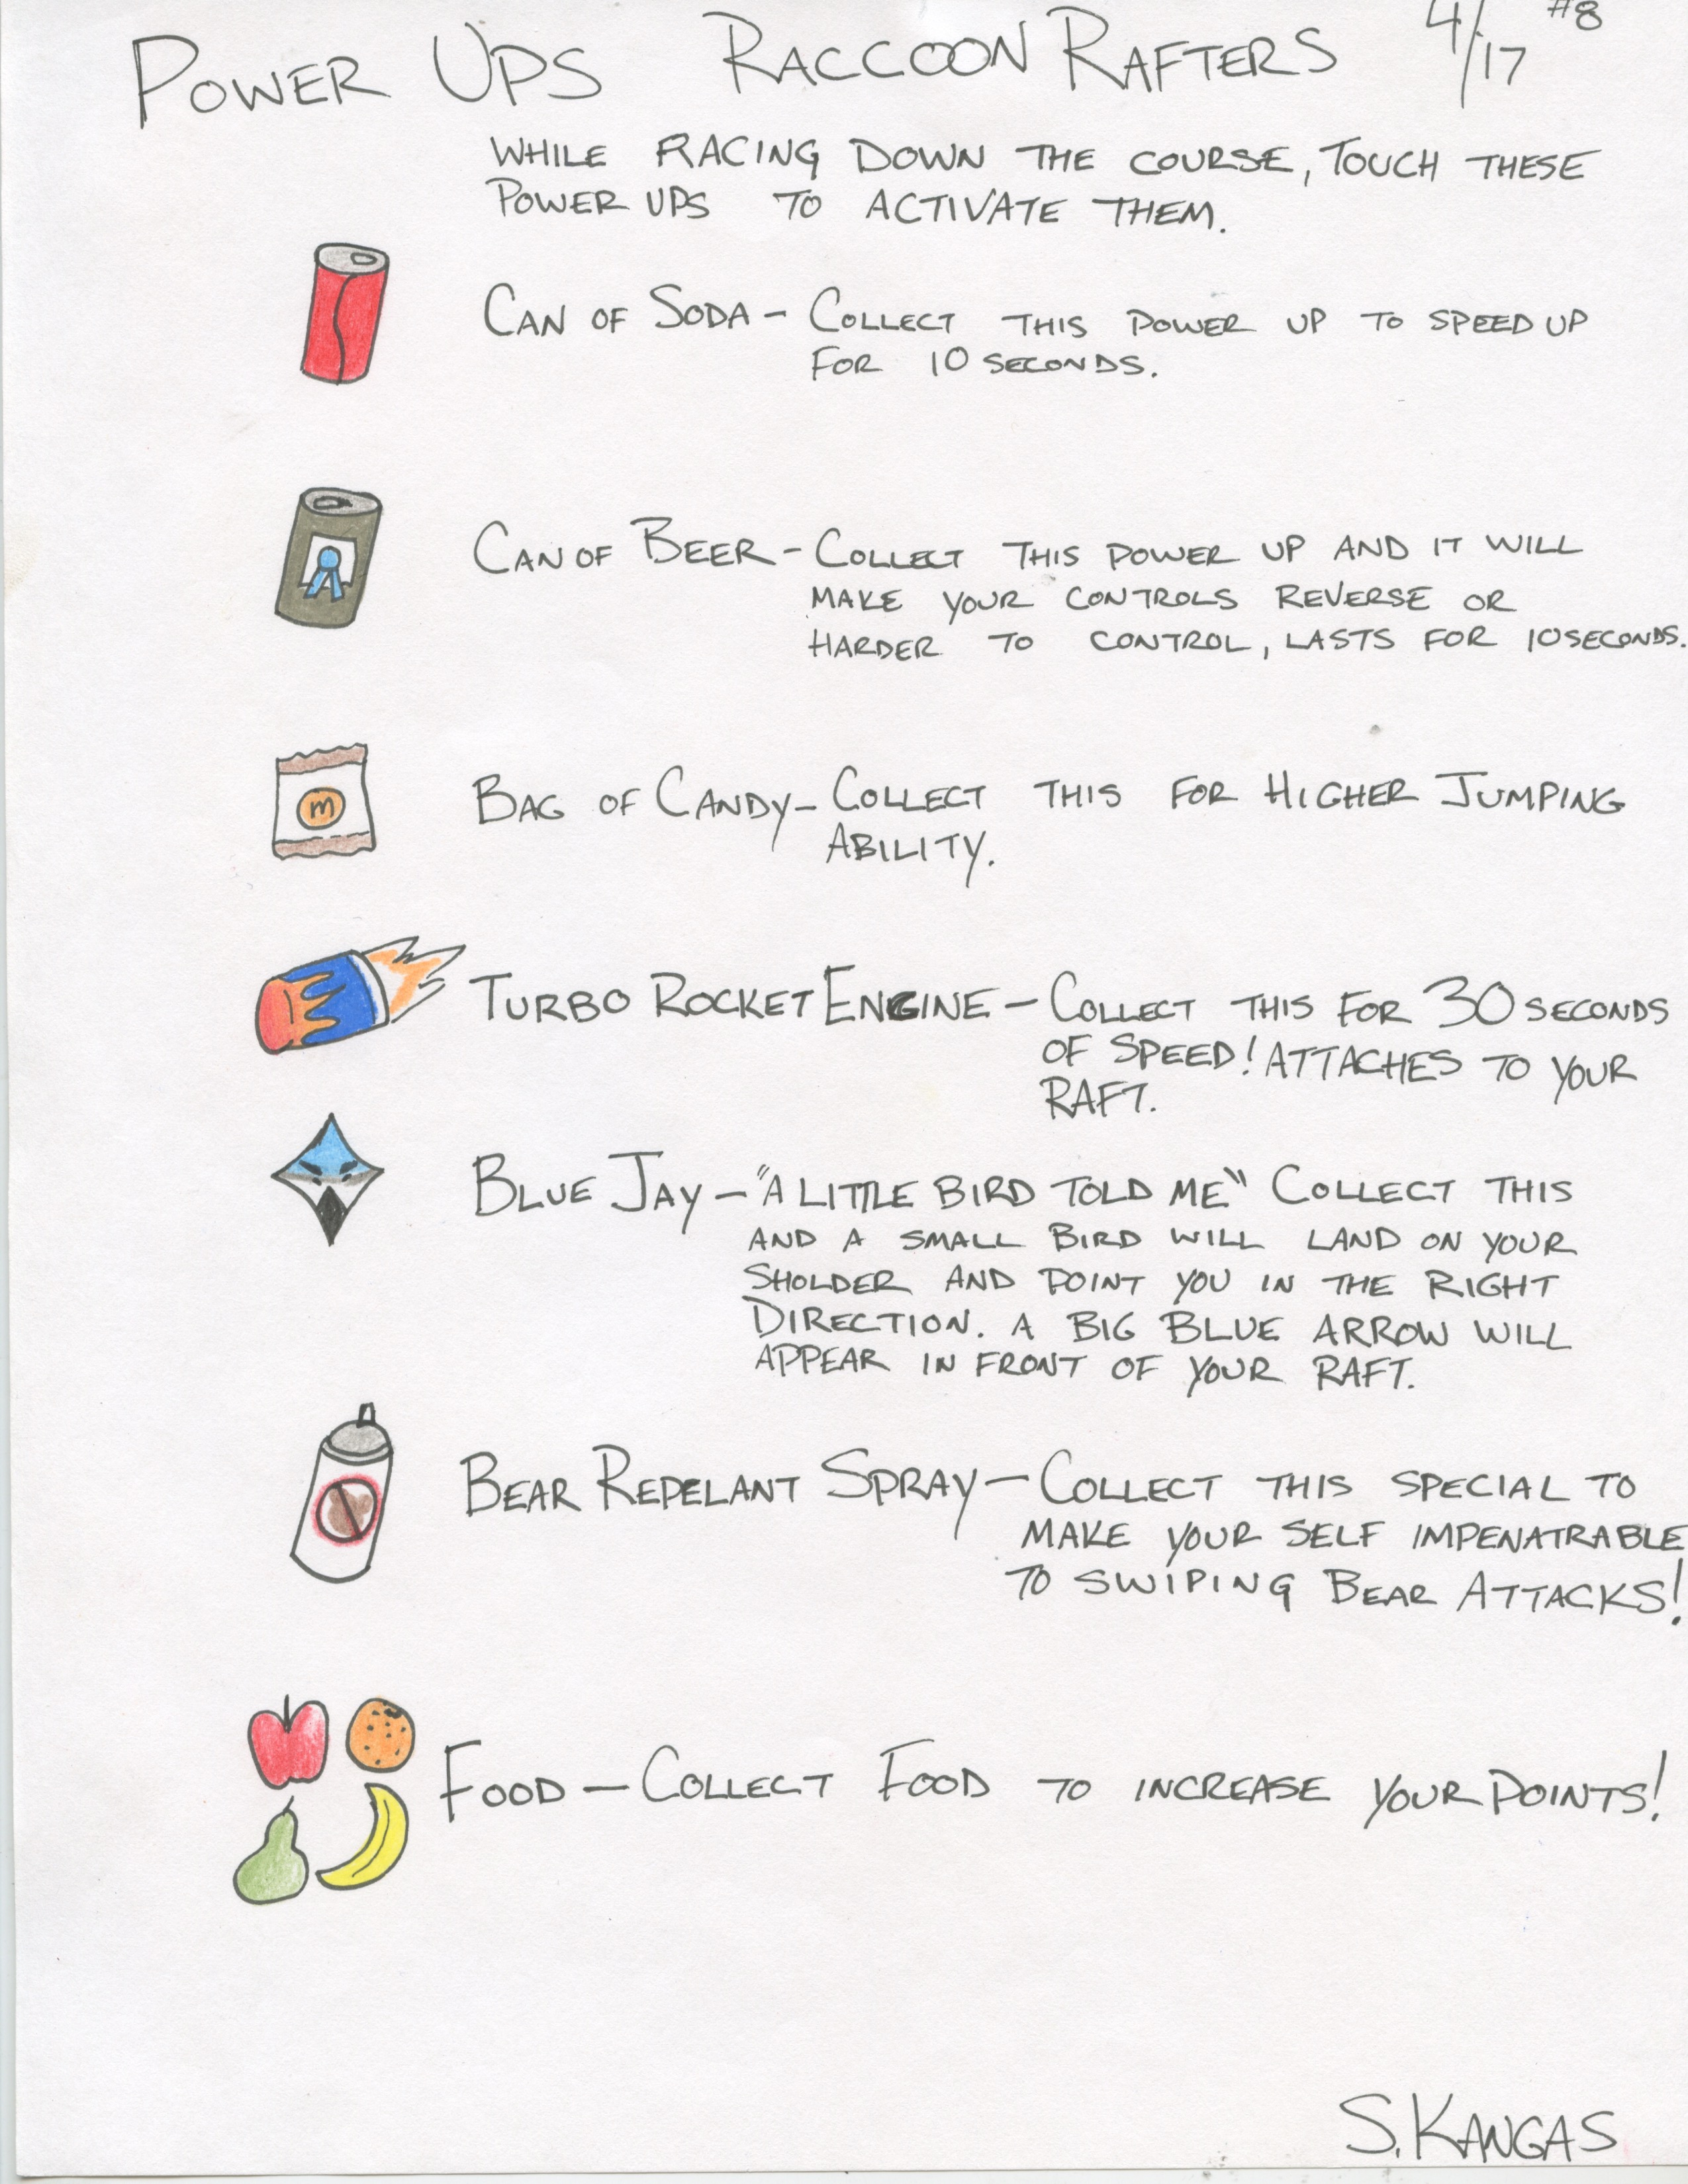 POWER UPS RACCOON RAFTERS 4/17 #8
WHILE RACING DOWN THE COURSE, TOUCH THESE
POWER UPS TO ACTIVATE THEM.
CAN OF SODA - COLLECT THIS POWER UP TO SPEED UP
FOR 10 SECONDS.
CAN OF BEER - COLLECT THIS POWER UP AND IT WILL
MAKE YOUR CONTROLS REVERSE OR
HARDER TO CONTROL, LASTS FOR 10 SECONDS.
m
BAG OF CANDY - COLLECT THIS FOR HIGHER JUMPING
ABILITY.
TURBO ROCKET ENGINE - COLLECT THIS FOR 30 SECONDS
OF SPEED! ATTACHES TO YOUR
RAFT.
BLUE JAY - "A LITTLE BIRD TOLD ME" COLLECT THIS
AND A SMALL BIRD WILL LAND ON YOUR
SHOLDER AND POINT YOU IN THE RIGHT
DIRECTION. A BIG BLUE ARROW WILL
APPEAR IN FRONT OF YOUR RAFT.
BEAR REPELANT SPRAY - COLLECT THIS SPECIAL TO
MAKE YOUR SELF IMPENATRABLE
TO SWIPING BEAR ATTACKS!
FOOD - COLLECT FOOD TO INCREASE YOUR POINTS!
S. KANGAS